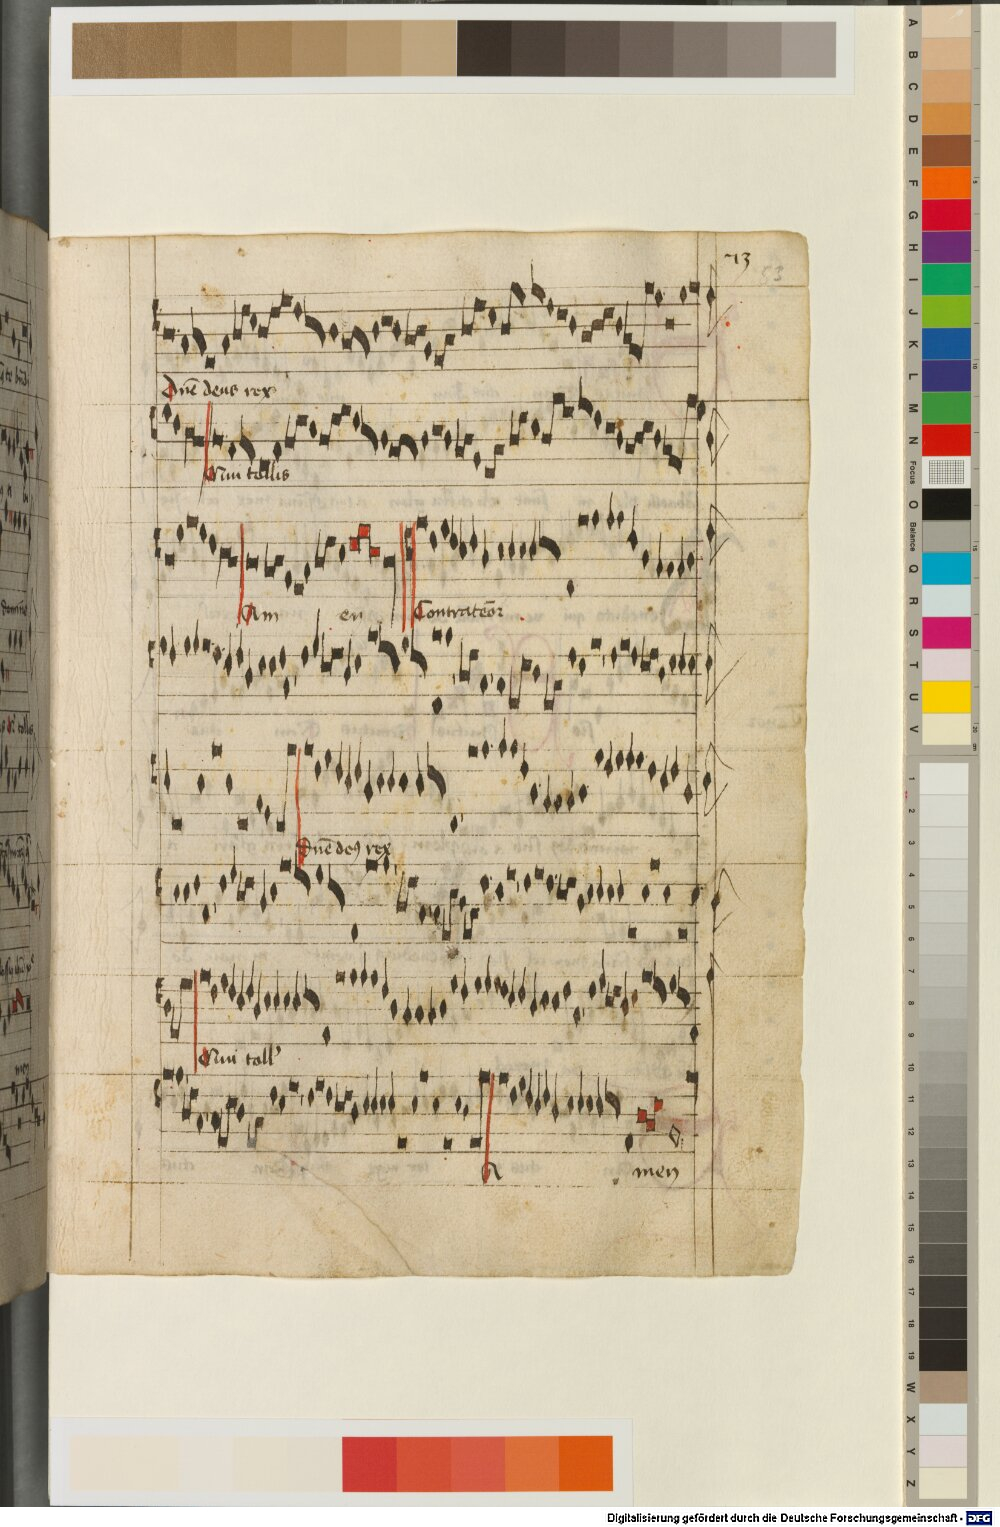 73
53
Dnē deus rex
Qui tollis
Am en Contratenor
Dnē deꝯ rex
Qui toll'
A men
A
B
C
D
E
F
G
H
I
J
K
L
M
N
Focus
O
Balance
Q
R
S
T
U
V
1
2
3
4
5
6
7
8
9
10
11
12
13
14
15
16
17
18
19
W
X
Y
Z
Digitalisierung gefördert durch die Deutsche Forschungsgemeinschaft - DFG